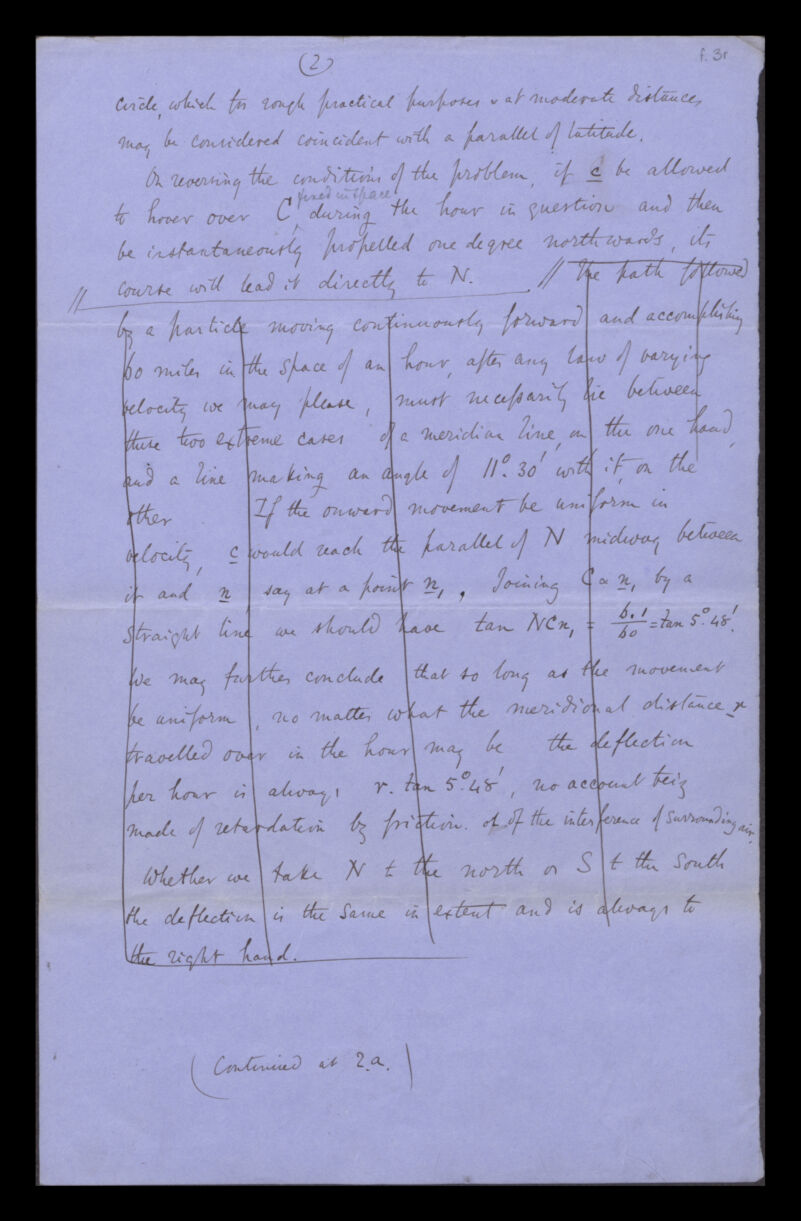 (2)
f. 3r
circle, which for rough practical purposes & at moderate distances
may be considered coincident with a parallel of latitude.
On reversing the conditions of the problem, if c be allowed
fixed in space
to hover over C, during the hour in question and then
be instantaneously propelled one degree northwards, its
course will lead it directly to N. // The path followed
// by a particle moving continuously forward and accomplishing
60 miles in the space of an hour, after any law of varying
velocity we may please, must necessarily lie between
these two extreme cases of a meridian line, on the one hand,
and a line making an angle of 11°. 30' with it, on the
other If the onward movement be uniform in
velocity, c would reach the parallel of N midway between
it and n, say at a point n₁, Joining C & n₁ by a
straight line we should have tan NCn₁ = 6.1/60 = tan 5°. 48'.
We may further conclude that so long as the movement
be uniform, no matter what the meridional distance r
travelled over in the hour may be the deflection
per hour is always r. tan 5°. 48', no account being
made of retardation by friction. or of the interference of surrounding air.
Whether we take N to the north or S to the South
the deflection is the same in extent and is always to
the right hand.
(Continued at 2.a.)